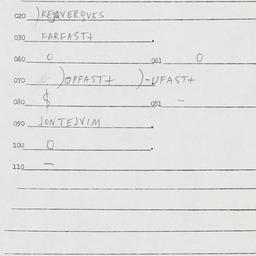 020 )KEAVERQVES
030 FARFAST+
060 0 061 0
070 )OPFAST+ )-UFAST+
080 $ 081 -
090 JONTEJVIM
100 0
110 -